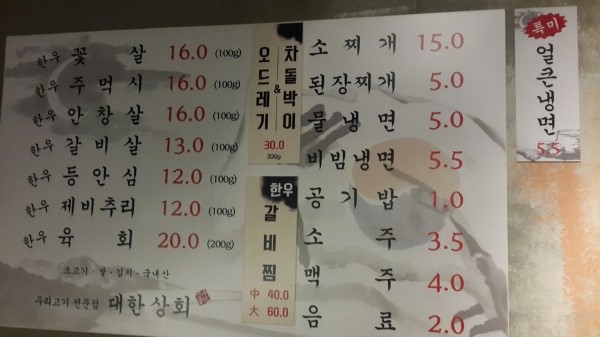 한우 꽃 살 16.0 (100g)
한우 주 먹 시 16.0 (100g)
한우 안 창 살 16.0 (100g)
한우 갈 비 살 13.0 (100g)
한우 등 안 심 12.0 (100g)
한우 제비추리 12.0 (100g)
한우 육 회 20.0 (200g)
소고기 · 쌀 · 김치 · 국내산
우리고기 전문점 대한상회
차돌박이
&
오드레기
30.0
300g
한우
갈비찜
中 40.0
大 60.0
소 찌 개 15.0
된장찌개 5.0
물 냉 면 5.0
비빔냉면 5.5
공 기 밥 1.0
소 주 3.5
맥 주 4.0
음 료 2.0
특미
얼큰냉면
5.5